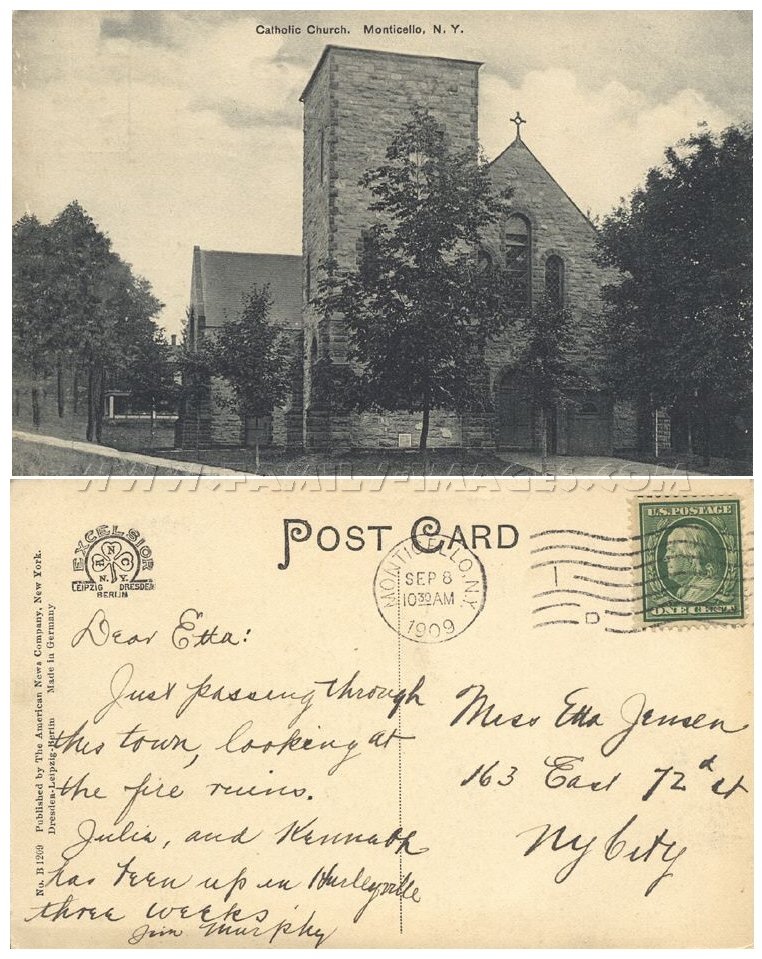 Catholic Church. Monticello, N. Y.
WWW.FAMILY-IMAGES.COM
POST CARD
EXCELSIOR
A N C
N. Y.
LEIPZIG DRESDEN
BERLIN
MONTICELLO, N.Y.
SEP 8
10 30 AM
1909
1
D
U.S. POSTAGE
ONE CENT
No. B 1209 Published by The American News Company, New York.
Dresden-Leipzig-Berlin Made in Germany
Dear Etta:
Just passing through
this town, looking at
the fire ruins.
Julia, and Kennath
has been up in Hurleyville
three weeks.
Jim Murphy
Miss Etta Jensen
163 East 72d st
Ny City